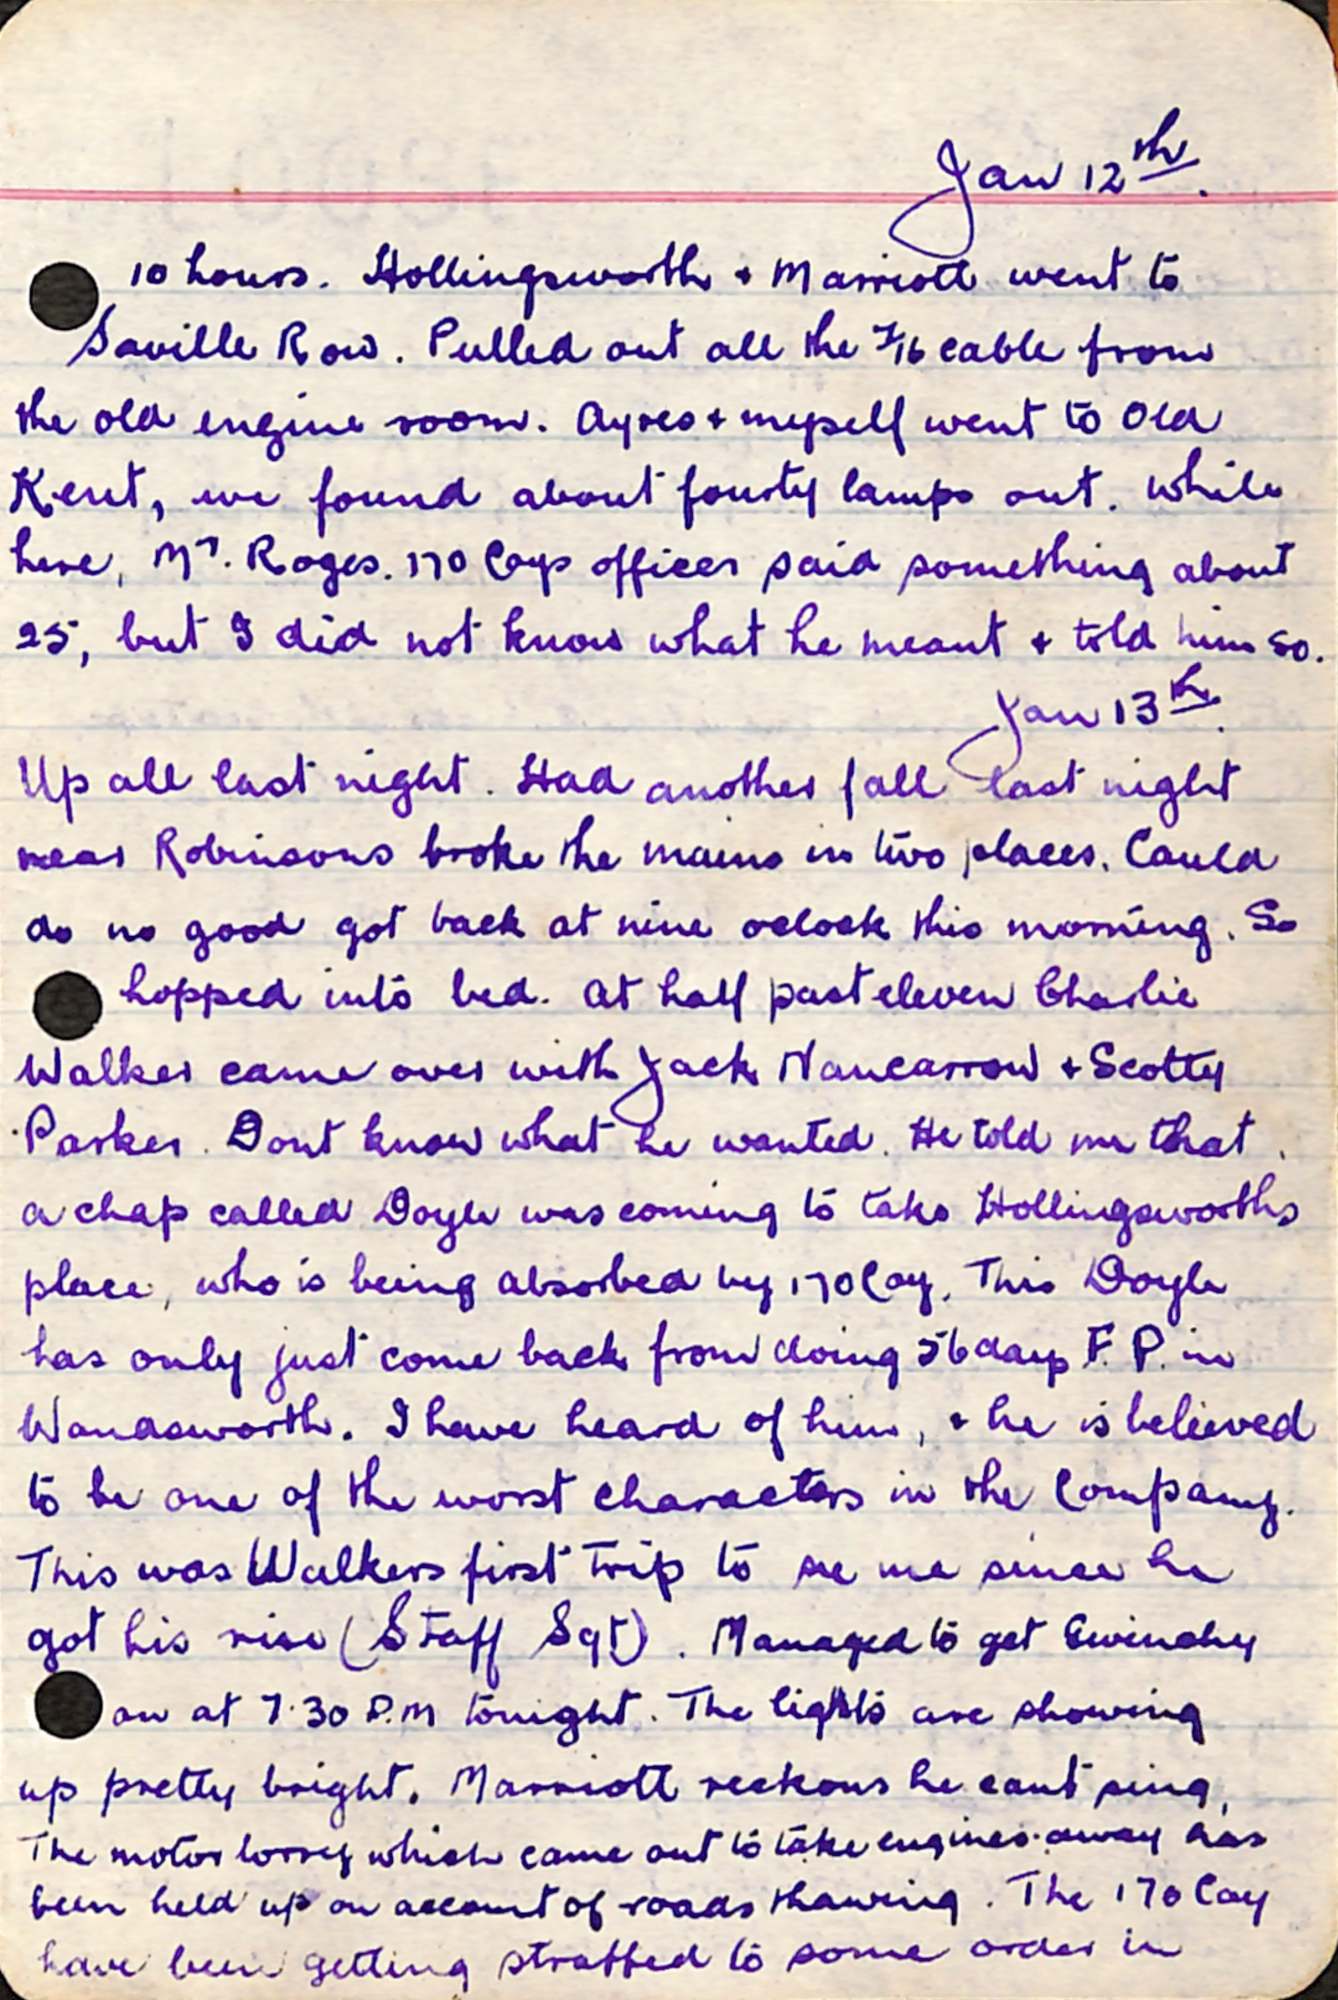 Jan 12th.
10 hours. Hollingsworth + Marriott went to
Saville Row. Pulled out all the 7/16 cable from
the old engine room. Ayres + myself went to Old
Kent, we found about fourty lamps out. While
here, Mr. Roges. 170 Coys officer said something about
25, but I did not know what he meant + told him so.
Jan 13th.
Up all last night. Had another fall last night
near Robinsons broke the mains in two places. Could
do no good got back at nine oclock this morning. So
hopped into bed. At half past eleven Charlie
Walker came over with Jack Nancarrow + Scotty
Parker. Dont know what he wanted. He told me that
a chap called Doyle was coming to take Hollingsworths
place, who is being absorbed by 170 Coy. This Doyle
has only just come back from doing 56 days F. P. in
Wandsworth. I have heard of him, + he is believed
to be one of the worst characters in the Company.
This was Walkers first trip to see me since he
got his rise (Staff Sgt). Managed to get Givenchy
on at 7.30 P.M tonight. The lights are showing
up pretty bright. Marriott reckons he cant sing,
The motor lorrey which came out to take engines away has
been held up on account of roads thawing. The 170 Coy
have been getting straffed to some order in